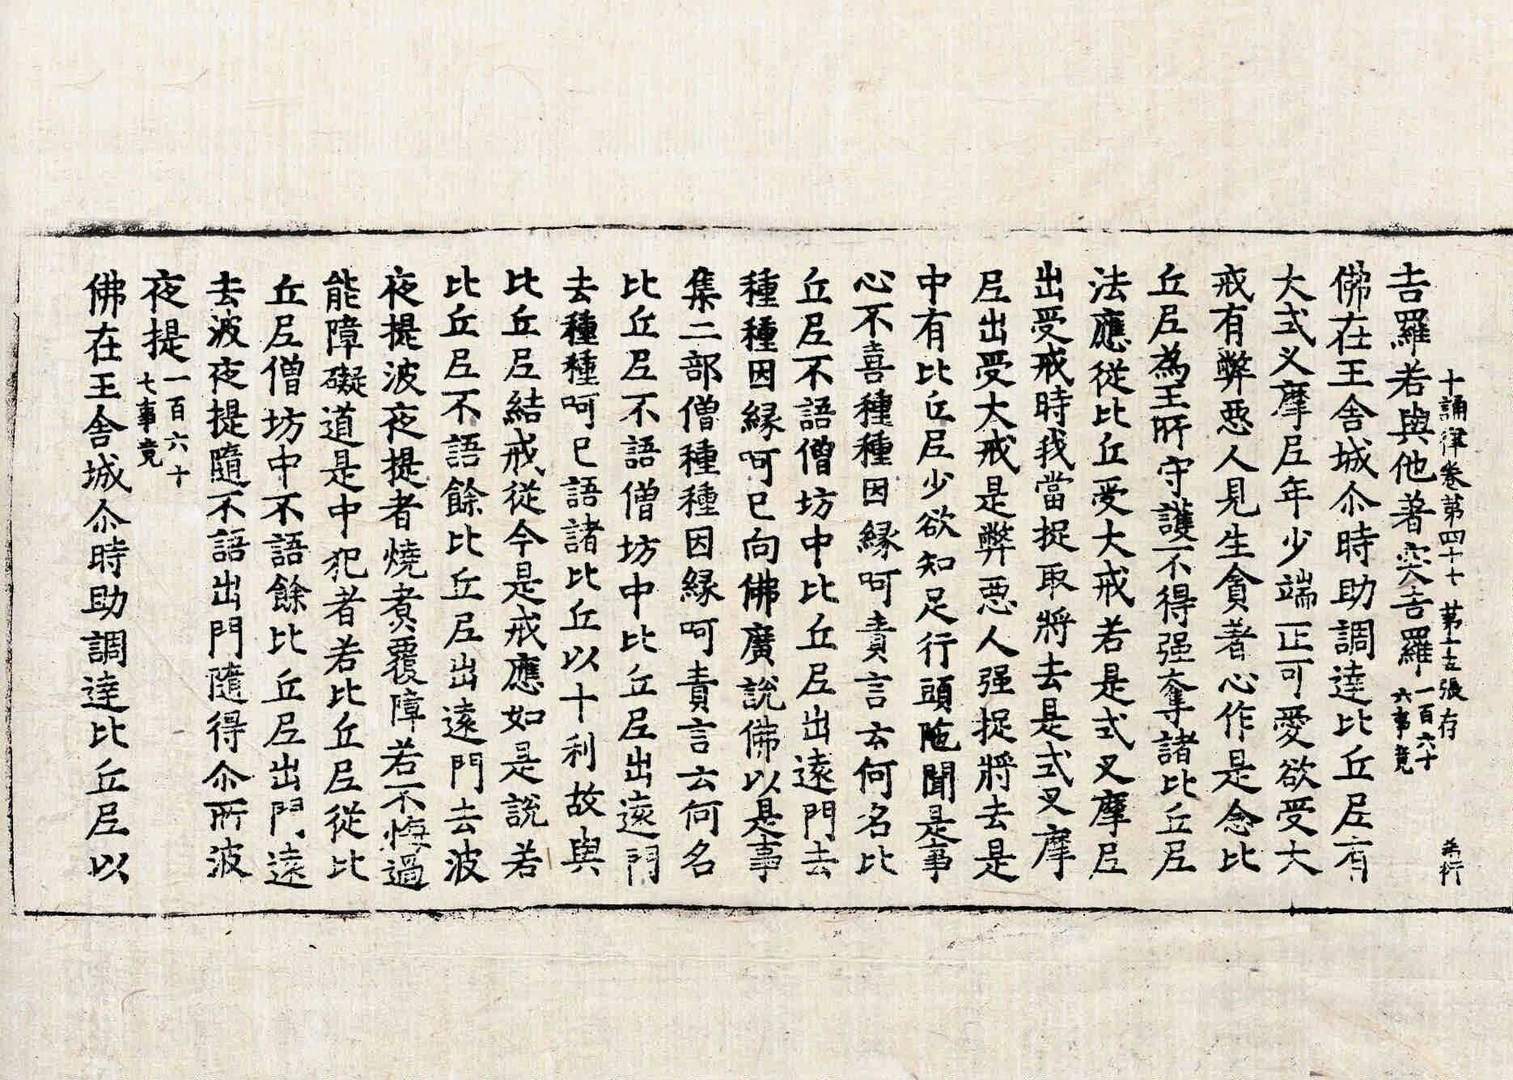 十誦律卷第四十七 第十五張 存
吉羅若與他著突吉羅 一百六十
六事竟
佛在王舍城尒時助調達比丘尼有
大式叉摩尼年少端正可愛欲受大
戒有弊惡人見生貪著心作是念比
丘尼為王所守護不得强奪諸比丘尼
法應從比丘受大戒若是式叉摩尼
出受戒時我當捉取將去是式叉摩
尼出受大戒是弊惡人强捉將去是
中有比丘尼少欲知足行頭陁聞是事
心不喜種種因緣呵責言云何名比
丘尼不語僧坊中比丘尼出遠門去
種種因緣呵已向佛廣說佛以是事
集二部僧種種因緣呵責言云何名
比丘尼不語僧坊中比丘尼出遠門
去種種呵已語諸比丘以十利故與
比丘尼結戒從今是戒應如是說若
比丘尼不語餘比丘尼出遠門去波
夜提波夜提者燒煑覆障若不悔過
能障礙道是中犯者若比丘尼從比
丘尼僧坊中不語餘比丘尼出門遠
去波夜提隨不語出門隨得尒所波
夜提 一百六十
七事竟
佛在王舍城尒時助調達比丘尼以